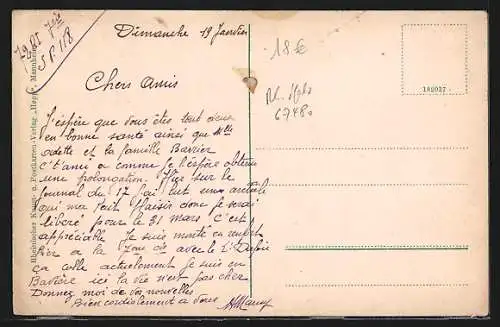 Dimanche 19 Janvier
Chers Amis
J'espère que vous êtes tous deux
en bonne santé ainsi que Mlle
Odette et la famille Bavier
c't'ami a comme je l'espère obtenu
une prolongation. Hier sur le
journal du 17 j'ai lut une article
qui ma fait plaisir donc je serai
libéré pour le 31 mars c'est
appréciable Je suis monté en renfort
hier a la avec le
ça colle actuellement je suis en
Bavière ici la vie n'est pas cher
Donnez moi de vos nouvelles
Bien cordialement a vous
18 €
67480
S P 118
182027
Rheinischer Kunst- u. Postkarten-Verlag „Hepp", Mannheim